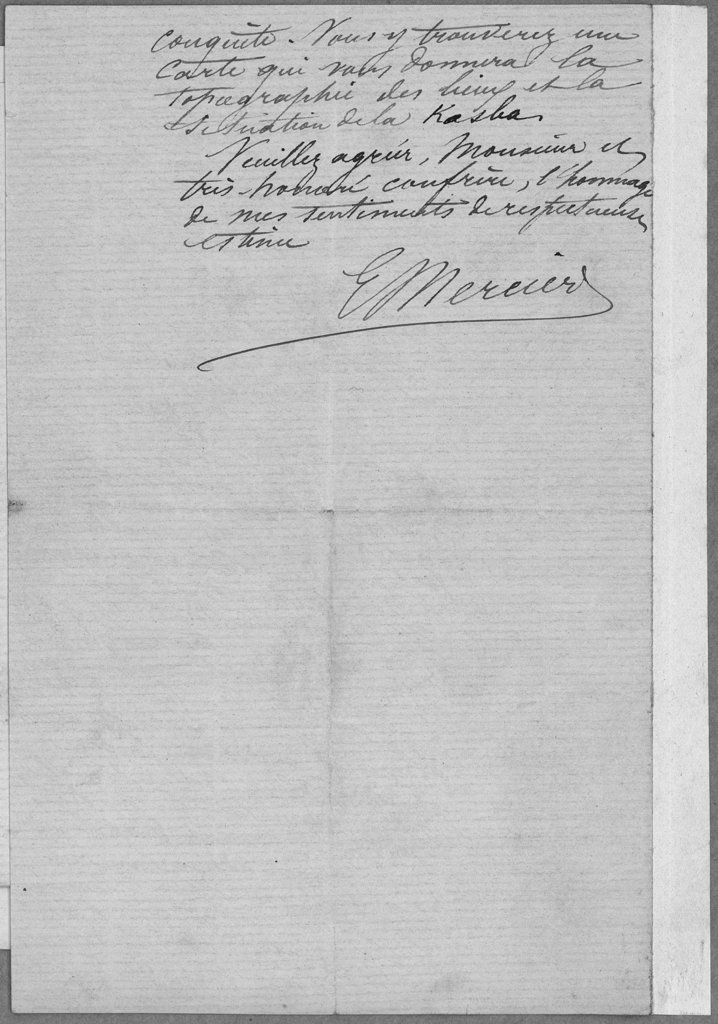 conquête. Vous y trouverez une
carte qui vous donnera la
topographie des lieux et la
situation de la Kasba.
Veuillez agréer, Monsieur et
très honoré confrère, l'hommage
de mes sentiments de respectueuse
estime
E Mercier